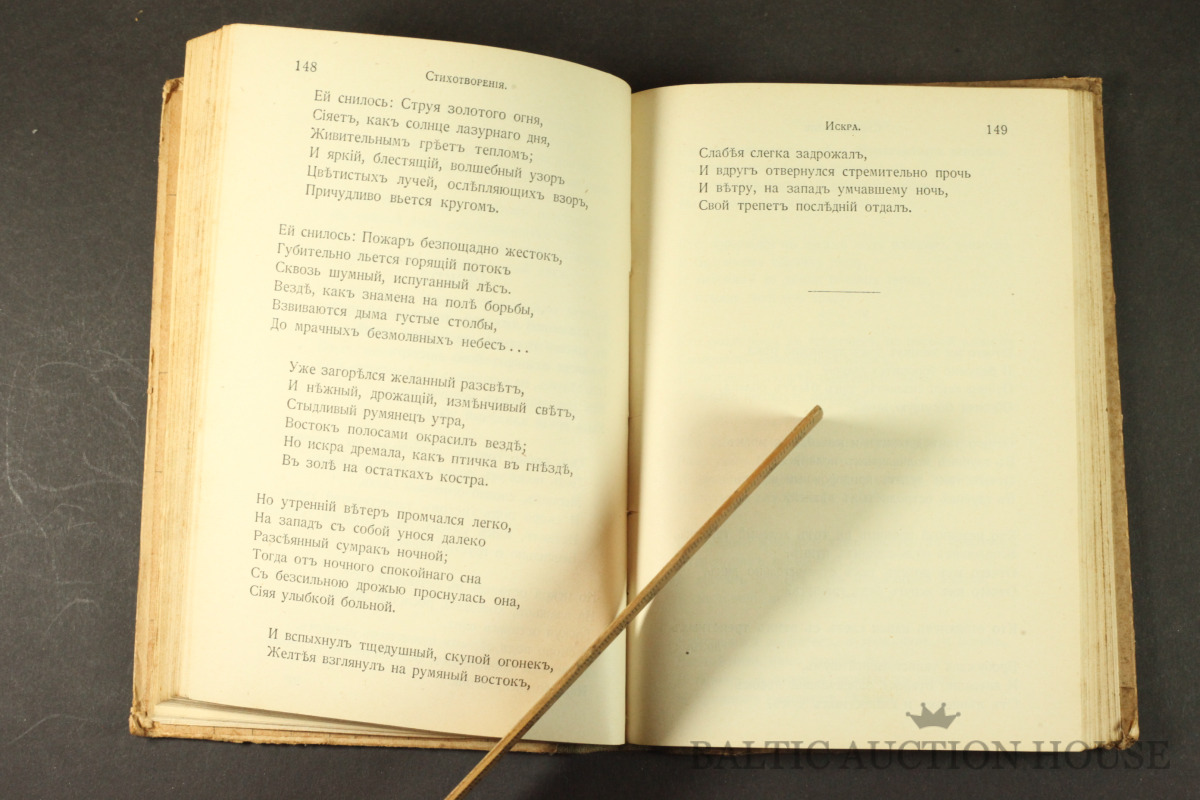 148
Стихотворенія.
Ей снилось: Струя золотого огня,
Сіяетъ, какъ солнце лазурнаго дня,
Живительнымъ грѣетъ тепломъ;
И яркій, блестящій, волшебный узоръ
Цвѣтистыхъ лучей, ослѣпляющихъ взоръ,
Причудливо вьется кругомъ.
Ей снилось: Пожаръ безпощадно жестокъ,
Губительно льется горящій потокъ
Сквозь шумный, испуганный лѣсъ.
Вездѣ, какъ знамена на полѣ борьбы,
Взвиваются дыма густые столбы,
До мрачныхъ безмолвныхъ небесъ...
Уже загорѣлся желанный разсвѣтъ,
И нѣжный, дрожащій, измѣнчивый свѣтъ,
Стыдливый румянецъ утра,
Востокъ полосами окрасилъ вездѣ;
Но искра дремала, какъ птичка въ гнѣздѣ,
Въ золѣ на остаткахъ костра.
Но утренній вѣтеръ промчался легко,
На западъ съ собой унося далеко
Разсѣянный сумракъ ночной;
Тогда отъ ночного спокойнаго сна
Съ безсильною дрожью проснулась она,
Сіяя улыбкой больной.
И вспыхнулъ тщедушный, скупой огонекъ,
Желтѣя взглянулъ на румяный востокъ,
Искра.
149
Слабѣя слегка задрожалъ,
И вдругъ отвернулся стремительно прочь
И вѣтру, на западъ умчавшему ночь,
Свой трепетъ послѣдній отдалъ.
BALTIC AUCTION HOUSE